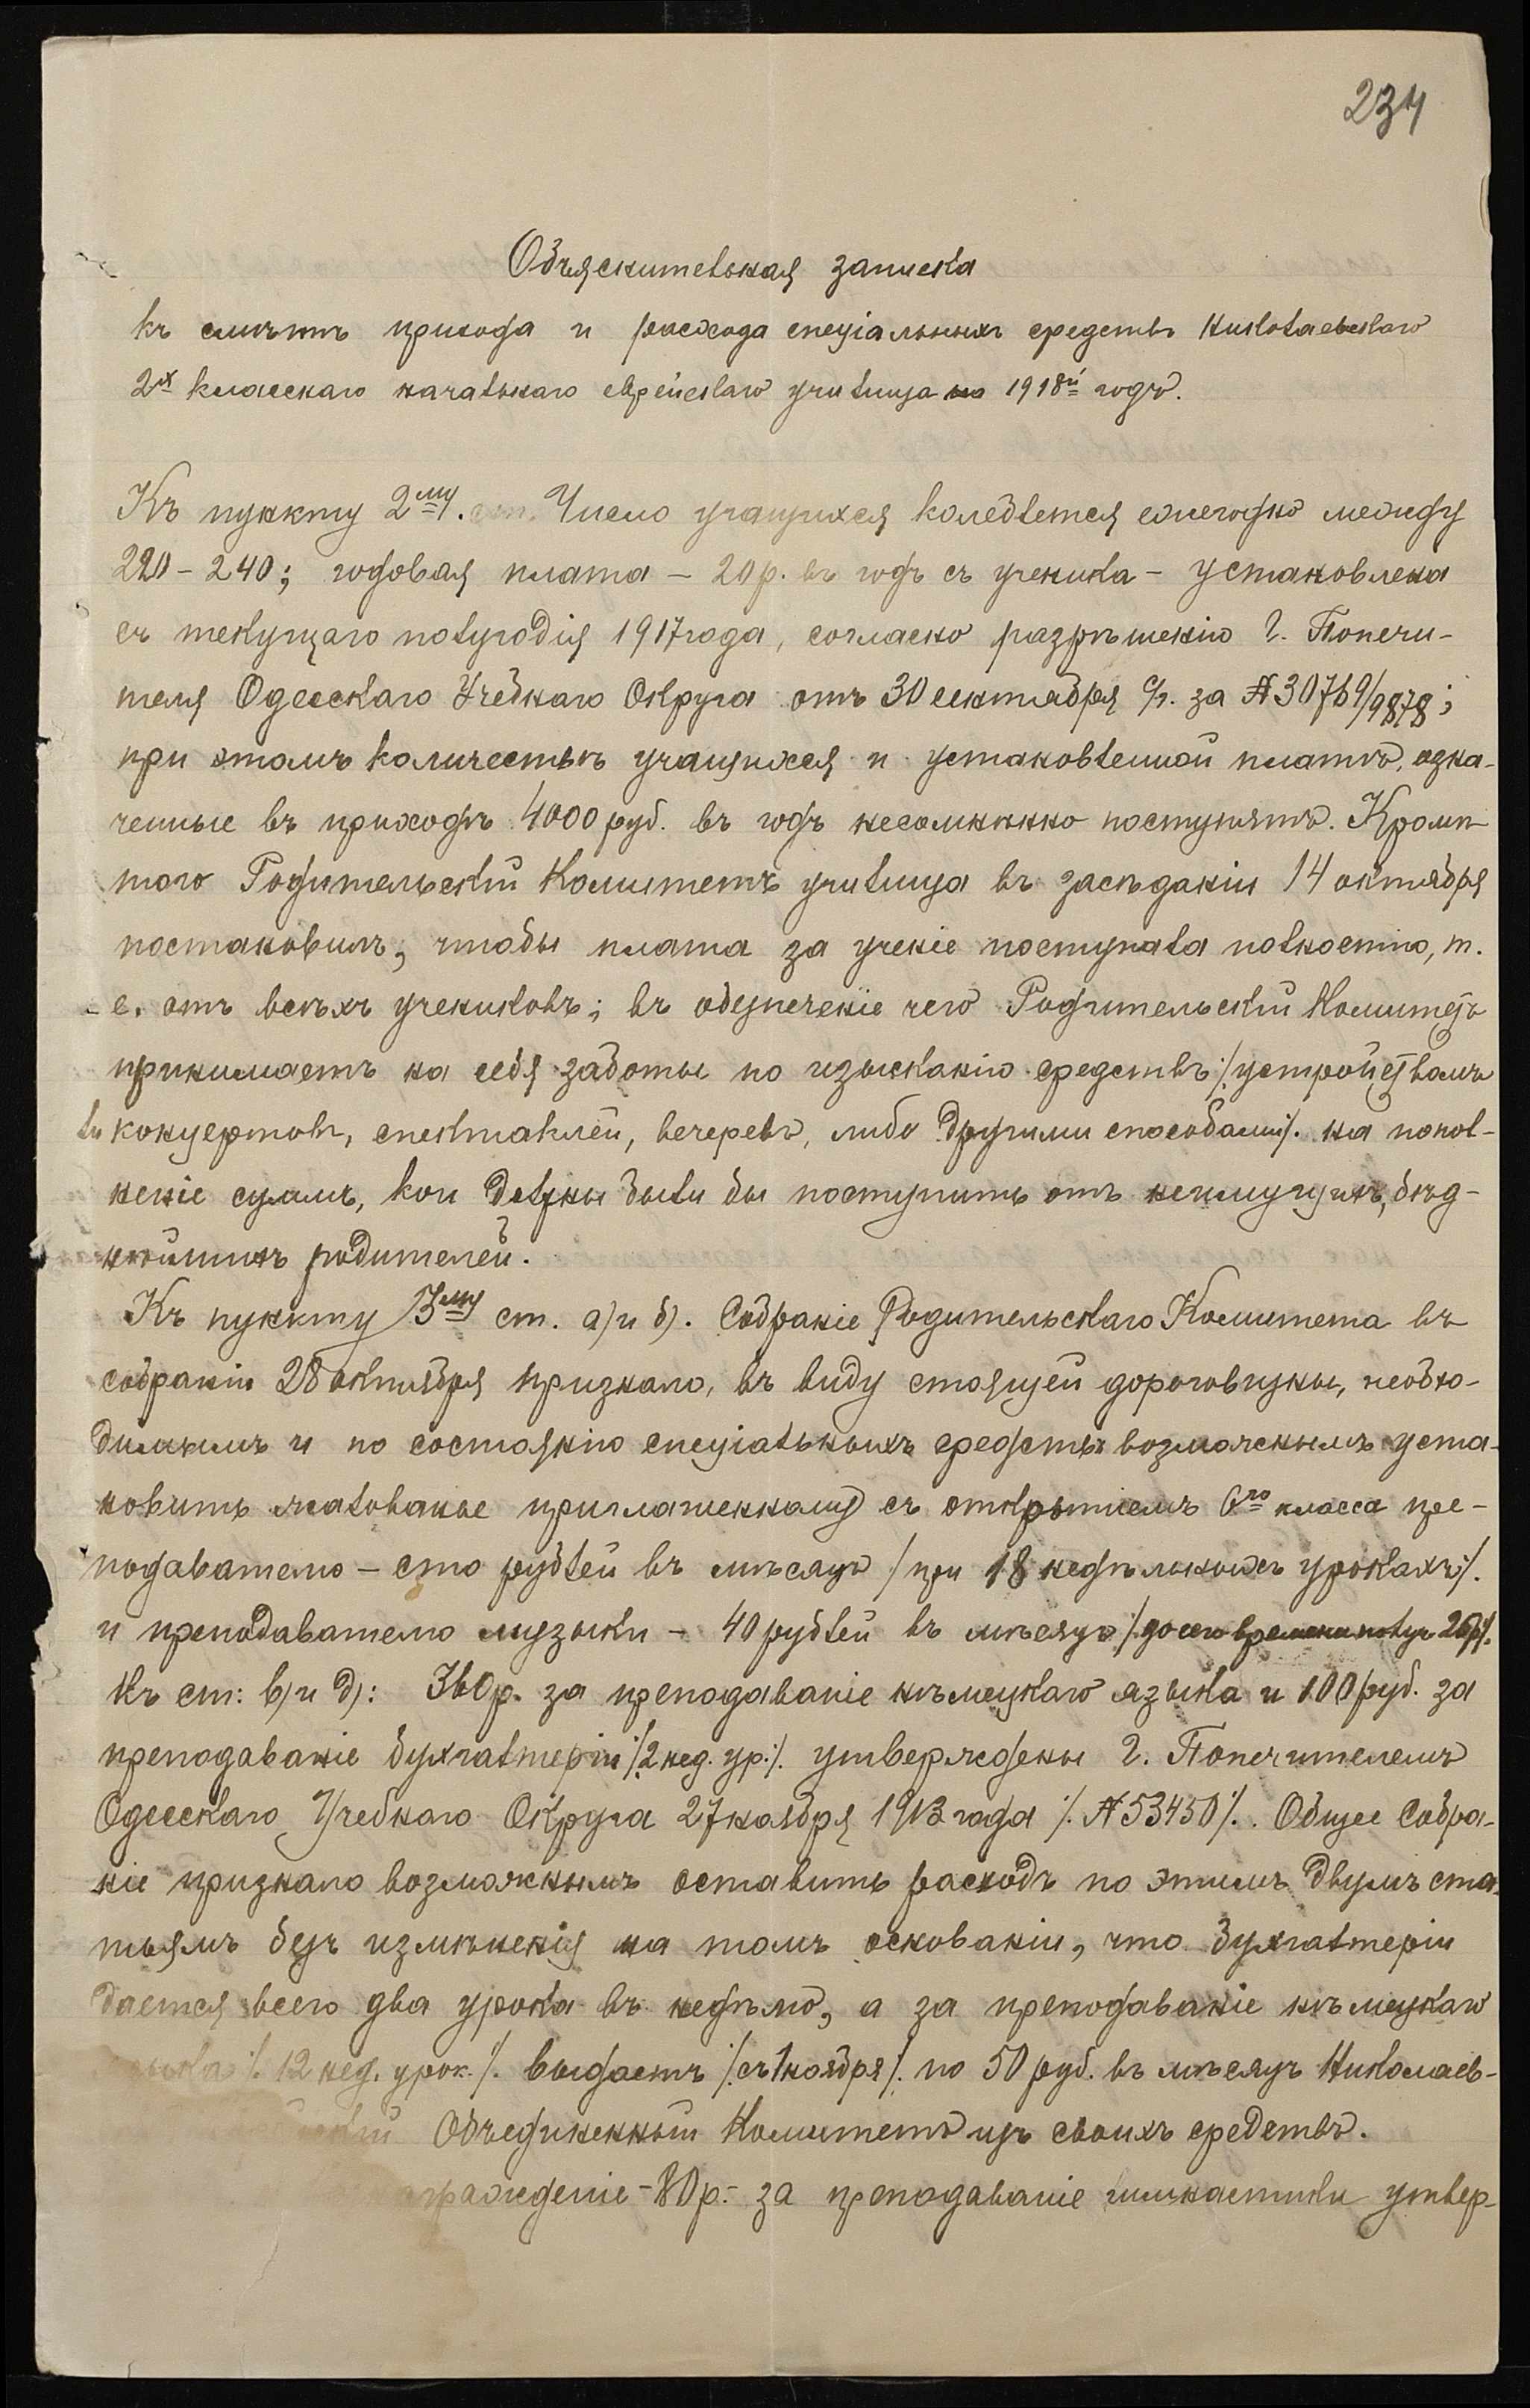 234
Объяснительная записка
къ смѣтѣ прихода и расхода спеціальныхъ средствъ Николаевскаго
2х класснаго начальнаго еврейскаго училища на 1918й годъ.
Къ пункту 2му. ст. Число учащихся колеблется ежегодно между
220 – 240; годовая плата – 20 р. въ годъ съ ученика – установлена
съ текущаго полугодія 1917 года, согласно разрѣшенію г. Попечи-
теля Одесскаго Учебнаго Округа отъ 30 сентября с/г. за № 30769/9878;
при этомъ количествѣ учащихся и установленной платѣ, озна-
ченные въ приходѣ 4000 руб. въ годъ несомнѣнно поступятъ. Кромѣ
того Родительскій Комитетъ училища въ засѣданіи 14 октября
постановилъ, чтобы плата за ученіе поступала полностью, т.
е. отъ всѣхъ учениковъ; въ обезпеченіе чего Родительскій Комитетъ
принимаетъ на себя заботы по изысканію средствъ /:устройствомъ
концертовъ, спектаклей, вечеровъ, либо другими способами:/. на попол-
неніе суммъ, кои должны были бы поступить отъ неимущихъ, бѣд-
нѣйшихъ родителей.
Къ пункту 3му ст. а) и б). Собраніе Родительскаго Комитета въ
собраніи 28 октября признало, въ виду стоящей дороговизны, необхо-
димымъ и по состоянію спеціальныхъ средствъ возможнымъ уста-
новить жалованье приглашенному съ открытіемъ 6го класса пре-
подавателю – сто рублей въ мѣсяцъ /при 18 недѣльныхъ урокахъ:/.
и преподавателю музыки – 40 рублей въ мѣсяцъ /:до сего времени получ. 20р:/.
Къ ст: в) и д): 360 р. за преподаваніе нѣмецкаго языка и 100 руб. за
преподаваніе бухгалтеріи /:2 нед. ур:/. утверждены г. Попечителемъ
Одесскаго Учебнаго Округа 27 ноября 1913 года /:№ 53450:/. Общее Собра-
ніе признало возможнымъ оставить расходъ по этимъ двумъ ста-
тьямъ безъ измѣненія на томъ основаніи, что бухгалтеріи
дается всего два урока въ недѣлю, а за преподаваніе нѣмецкаго
языка /:12 нед. урок:/. выдаетъ /:съ 1 ноября:/. по 50 руб. въ мѣсяцъ Николаев-
Объединенный Комитетъ изъ своихъ средствъ.
награжденіе – 80 р. – за преподаваніе гимнастики утвер-